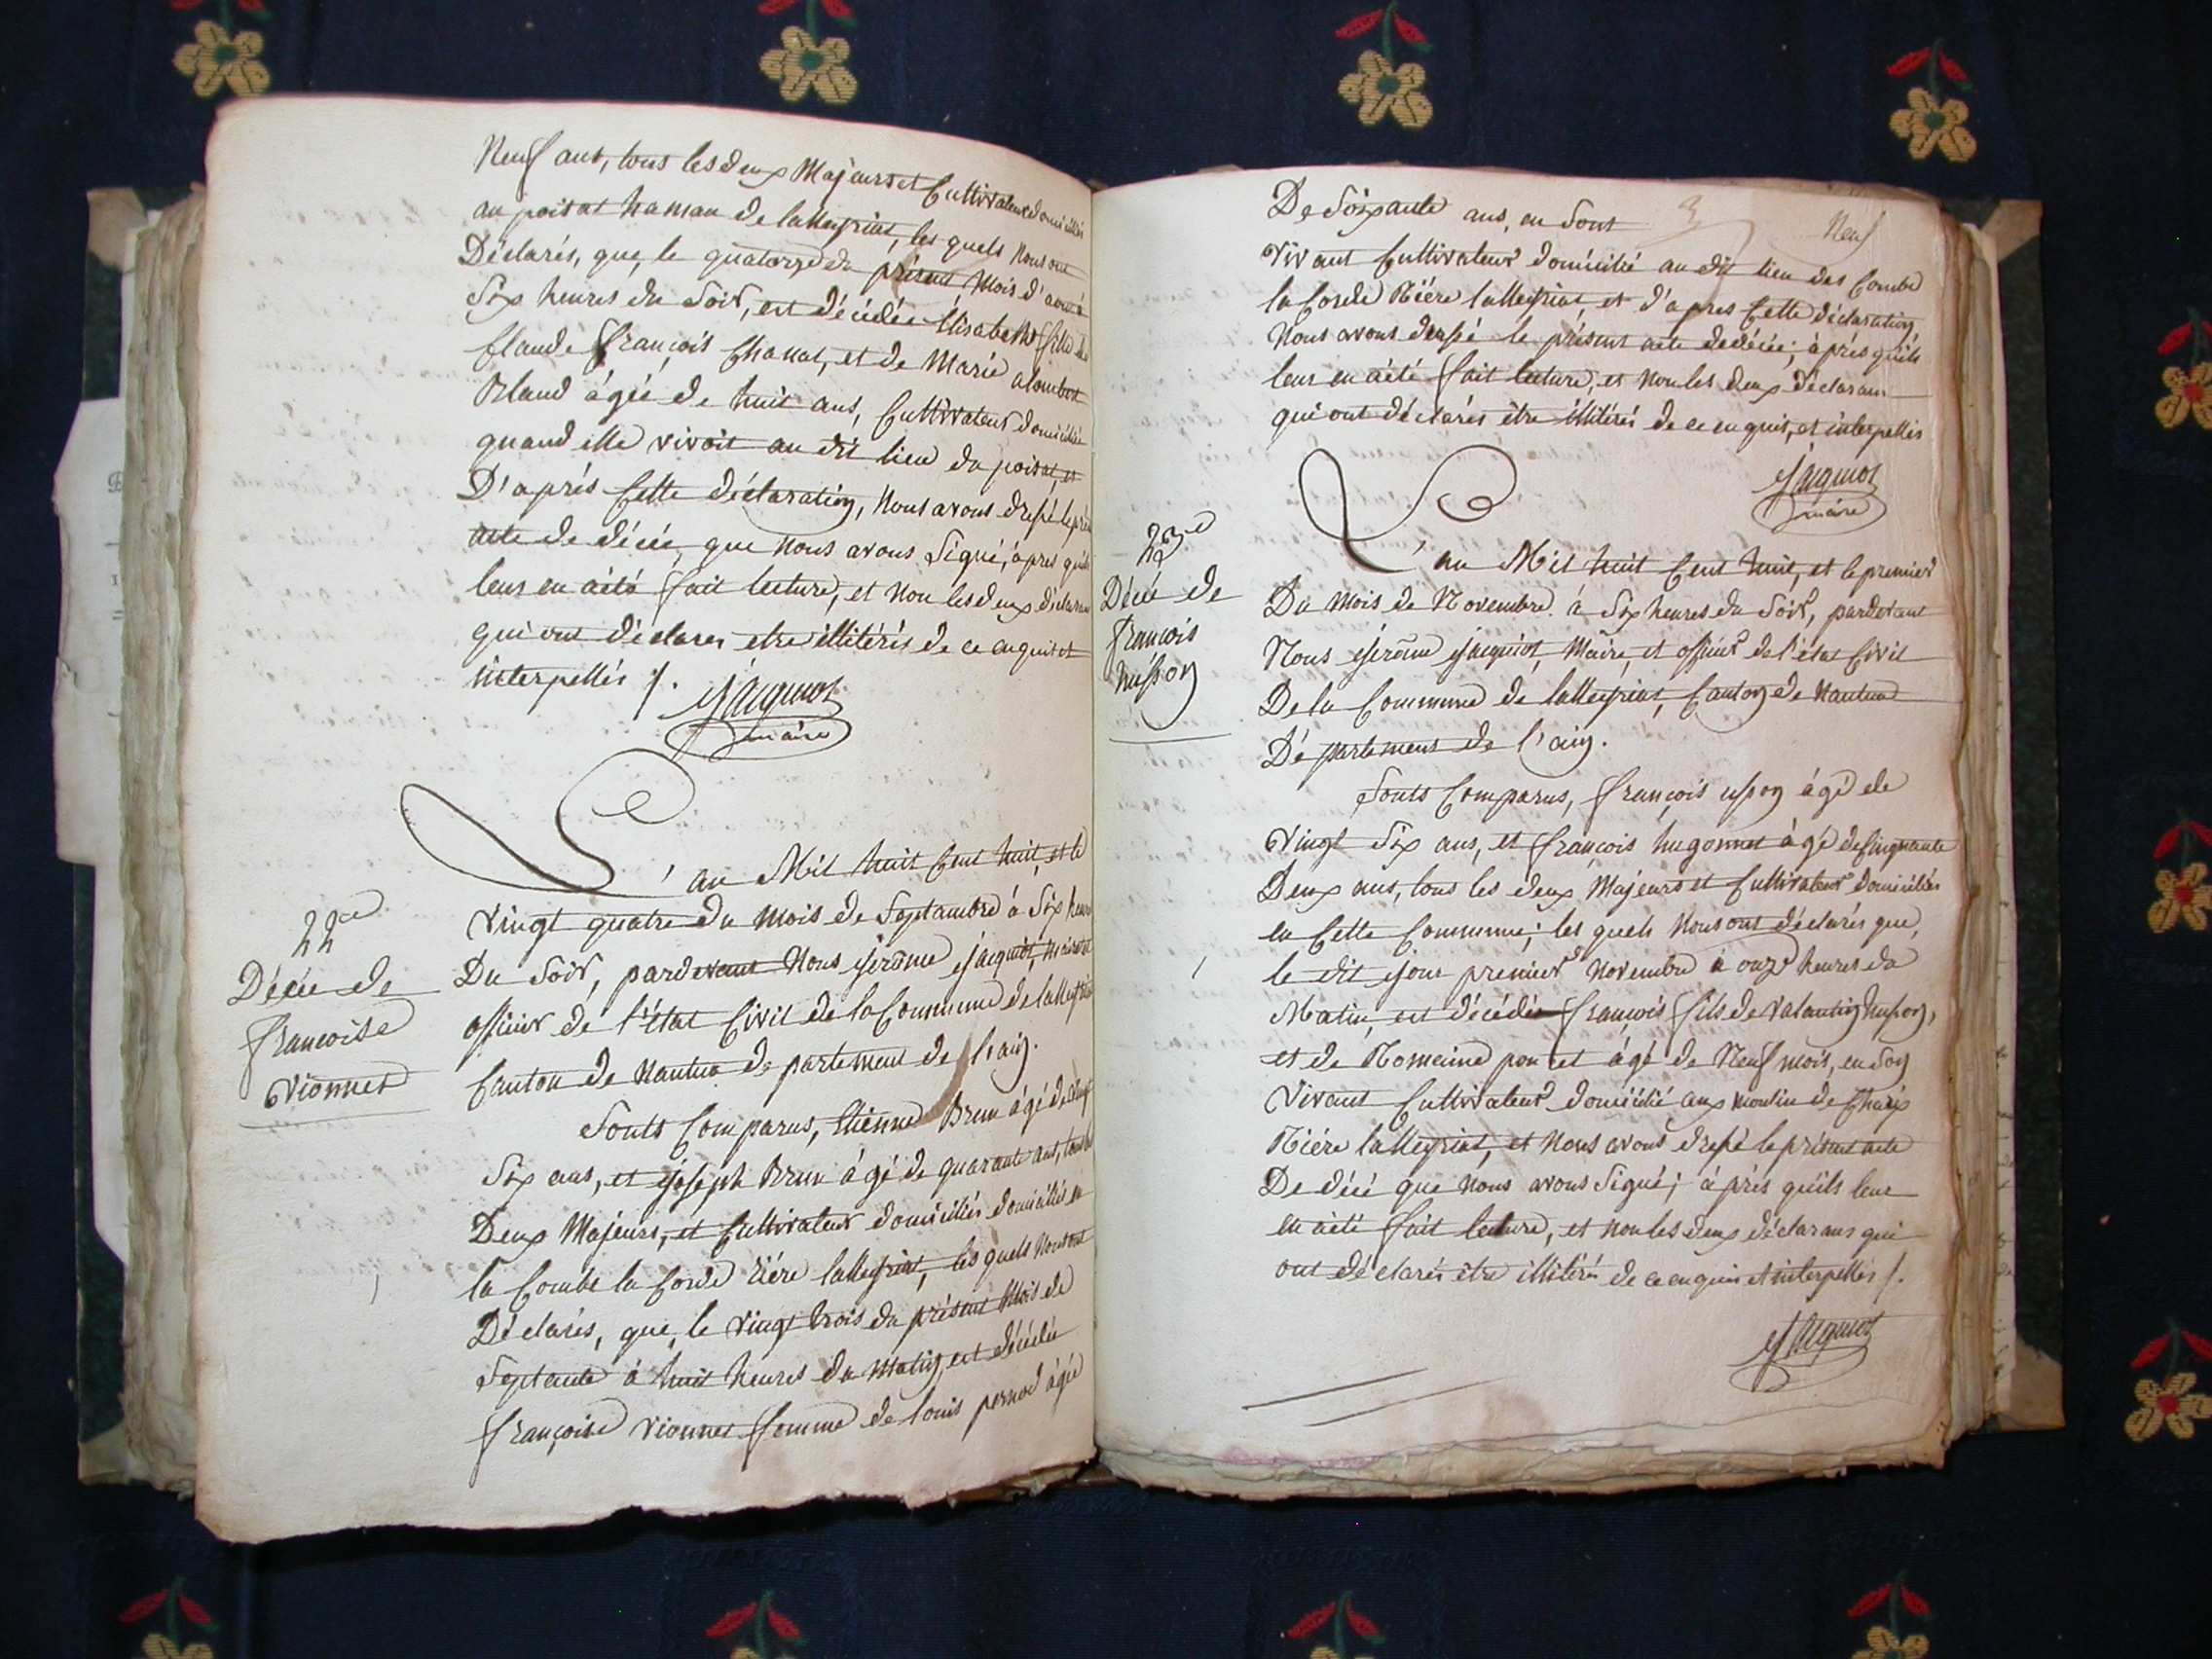 Neuf ans, tous les deux Majeurs et Cultivateurs domiciliés
au poisat hamau de lalleyriat, les quels Nous ont
Déclarés, que, le quatorze du présent Mois d'aout à
Six heures du Soir, est décédée Elisabeth fille de
Claude François Chanat, et de Marie
Bland âgéé de huit ans, Cultivateur domiciliée
quand elle vivoit au dit lieu du poisat, et
D'après Cette déclaration, Nous avons dressé le pré
acte de décée, que nous avons Signé, après qu'ils
leur en aété fait lecture, et Non les deux déclarans
qui ont déclares etre illitérés de ce enquis et
interpellés /.
Jacquiot
maire
22me
Décée de
francoise
Vionnet
L'an Mil huit Cent huit, et le
Vingt quatre du Mois de Septambre à Six heures
Du Soir, pardevant Nous jerôme jacquiot, maire et
officier de l'état Civil de la Commune de lalleyriat
Canton de Nantua département de l'ain.
Sonts Comparus, Etienne Brun âgé de vingt
Six ans, et joseph Brun âgé de quarante ans, tous les
Deux Majeurs, et Cultivateur domiciliés domiciliés en
la Combe la Corde riére lalleyriat, les quels Nous ont
Déclarés, que, le Vingt trois du présent Mois de
Septembre à huit heures du Matin, est décédée
françoise Vionnet femme de louis pernod âgée
Neuf
De Soixante ans, en Sont
Vivant Cultivateur domicilié au dit lieu des Combe
la Corde Riére lalleyriat, et d'apres Cette déclaration,
Nous avons dressé le présent acte dedécée; après qu'ils
leur en aété fait lecture, et non les deux déclarans
qui ont déclarés être illitérés de ce enquis, et interpellés
Jacquiot
maire
23me
Décée de
françois
husson
L'an Mil huit Cent huit, et le premier
Du Mois de Novembre à Six heures du Soir, pardevant
Nous jerôme jacquiot, Maire, et officier de l'état Civil
De la Commune de lalleyriat, Canton de Nantua
Département de l'ain.
Sonts Comparus, françois usson âgé de
Vingt Six ans, et françois hugonnet âgé de Cinquante
Deux ans, tous les deux Majeurs et Cultivateur domiciliés
en Cette Commune; les quels Nous ont déclarés que,
le dit jour premier Novembre à onze heures du
Matin, est décédée françois fils de Valantin husson,
et de Romaine poncet âgé de Neuf mois, en Son
Vivant Cultivateur domicilié aux moulin de Charix
Riére lalleyriat, et Nous avons dressé le présent acte
De décé que Nous avons Signé; après qu'ils leur
en aété fait lecture, et non les deux déclarans qui
ont déclarés être illitérés de ce enquis et interpellés /.
Jacquiot